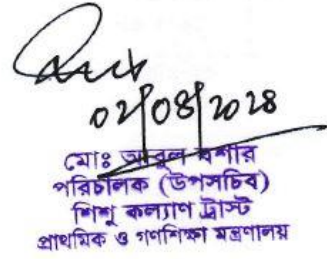 ০২/০৪/২০২৪
মোঃ আবুল বশীর
পরিচালক (উপসচিব)
শিশু কল্যাণ ট্রাস্ট
প্রাথমিক ও গণশিক্ষা মন্ত্রণালয়